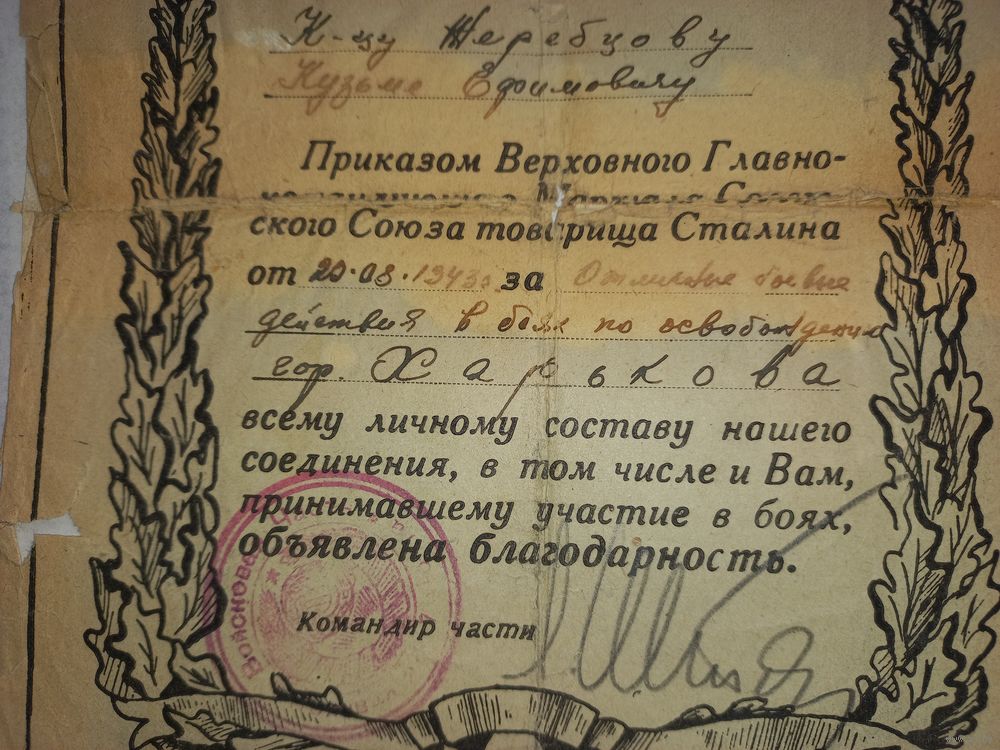 К-цу Жеребцову
Кузьме Ефимовичу
Приказом Верховного Главно-
ского Союза товарища Сталина
от 23.08.1943г за Отличные боевые
действия в боях по освобождению
гор. Харькова
всему личному составу нашего
соединения, в том числе и Вам,
принимавшему участие в боях,
объявлена благодарность.
Командир части